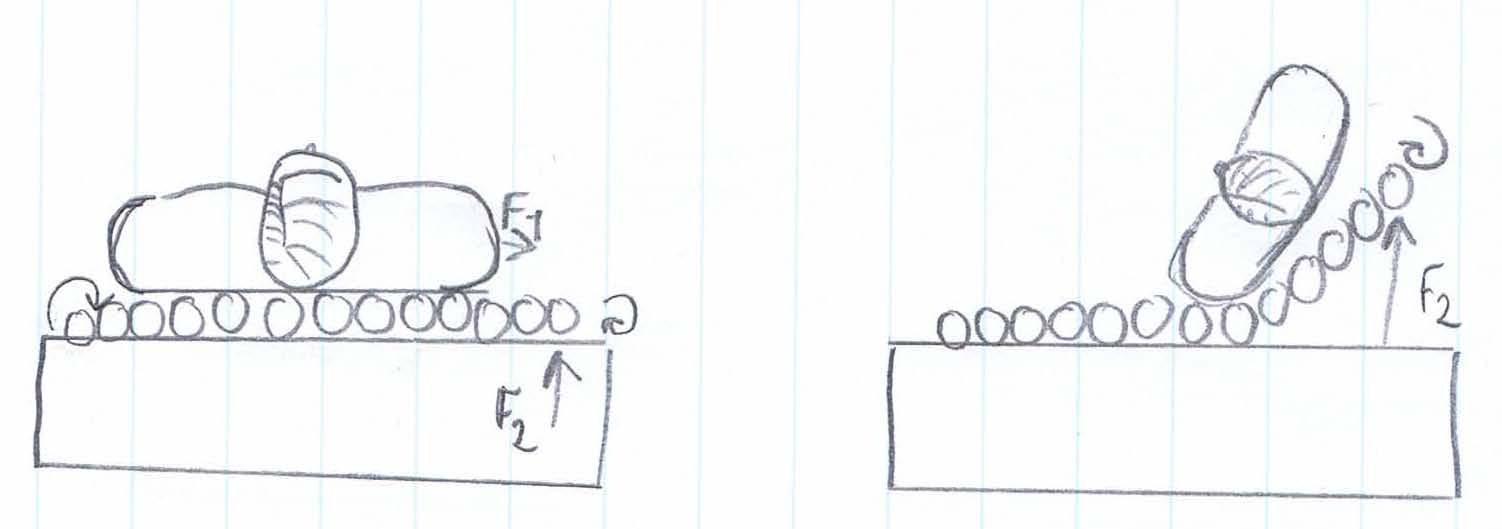 F1
F2
F2